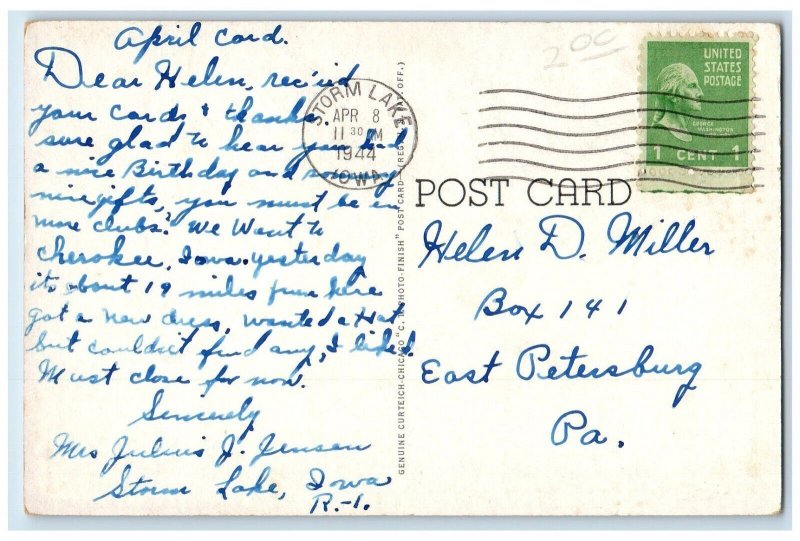 April Card.
Dear Helen, rec'ied
your cards & thanks.
sure glad to hear you had
a nice Birthday and so many
nice gifts, you must be in
more clubs. We Went to
Cherokee, Iowa. yesterday
its about 19 miles from here
got a new dress, wanted a Hat
but couldn't find any, I liked.
Must close for now.
Sincerely
Mrs Julius J. Jensen
Storm Lake, Iowa
R-1.
GENUINE CURTEICH-CHICAGO "C. T. PHOTO-FINISH" POST CARD (REG. U.S. PAT. OFF.)
STORM LAKE
APR 8
11 30 M
1944
IOWA
20c
UNITED
STATES
POSTAGE
GEORGE
WASHINGTON
1 CENT 1
POST CARD
Helen D. Miller
Box 141
East Petersburg
Pa.